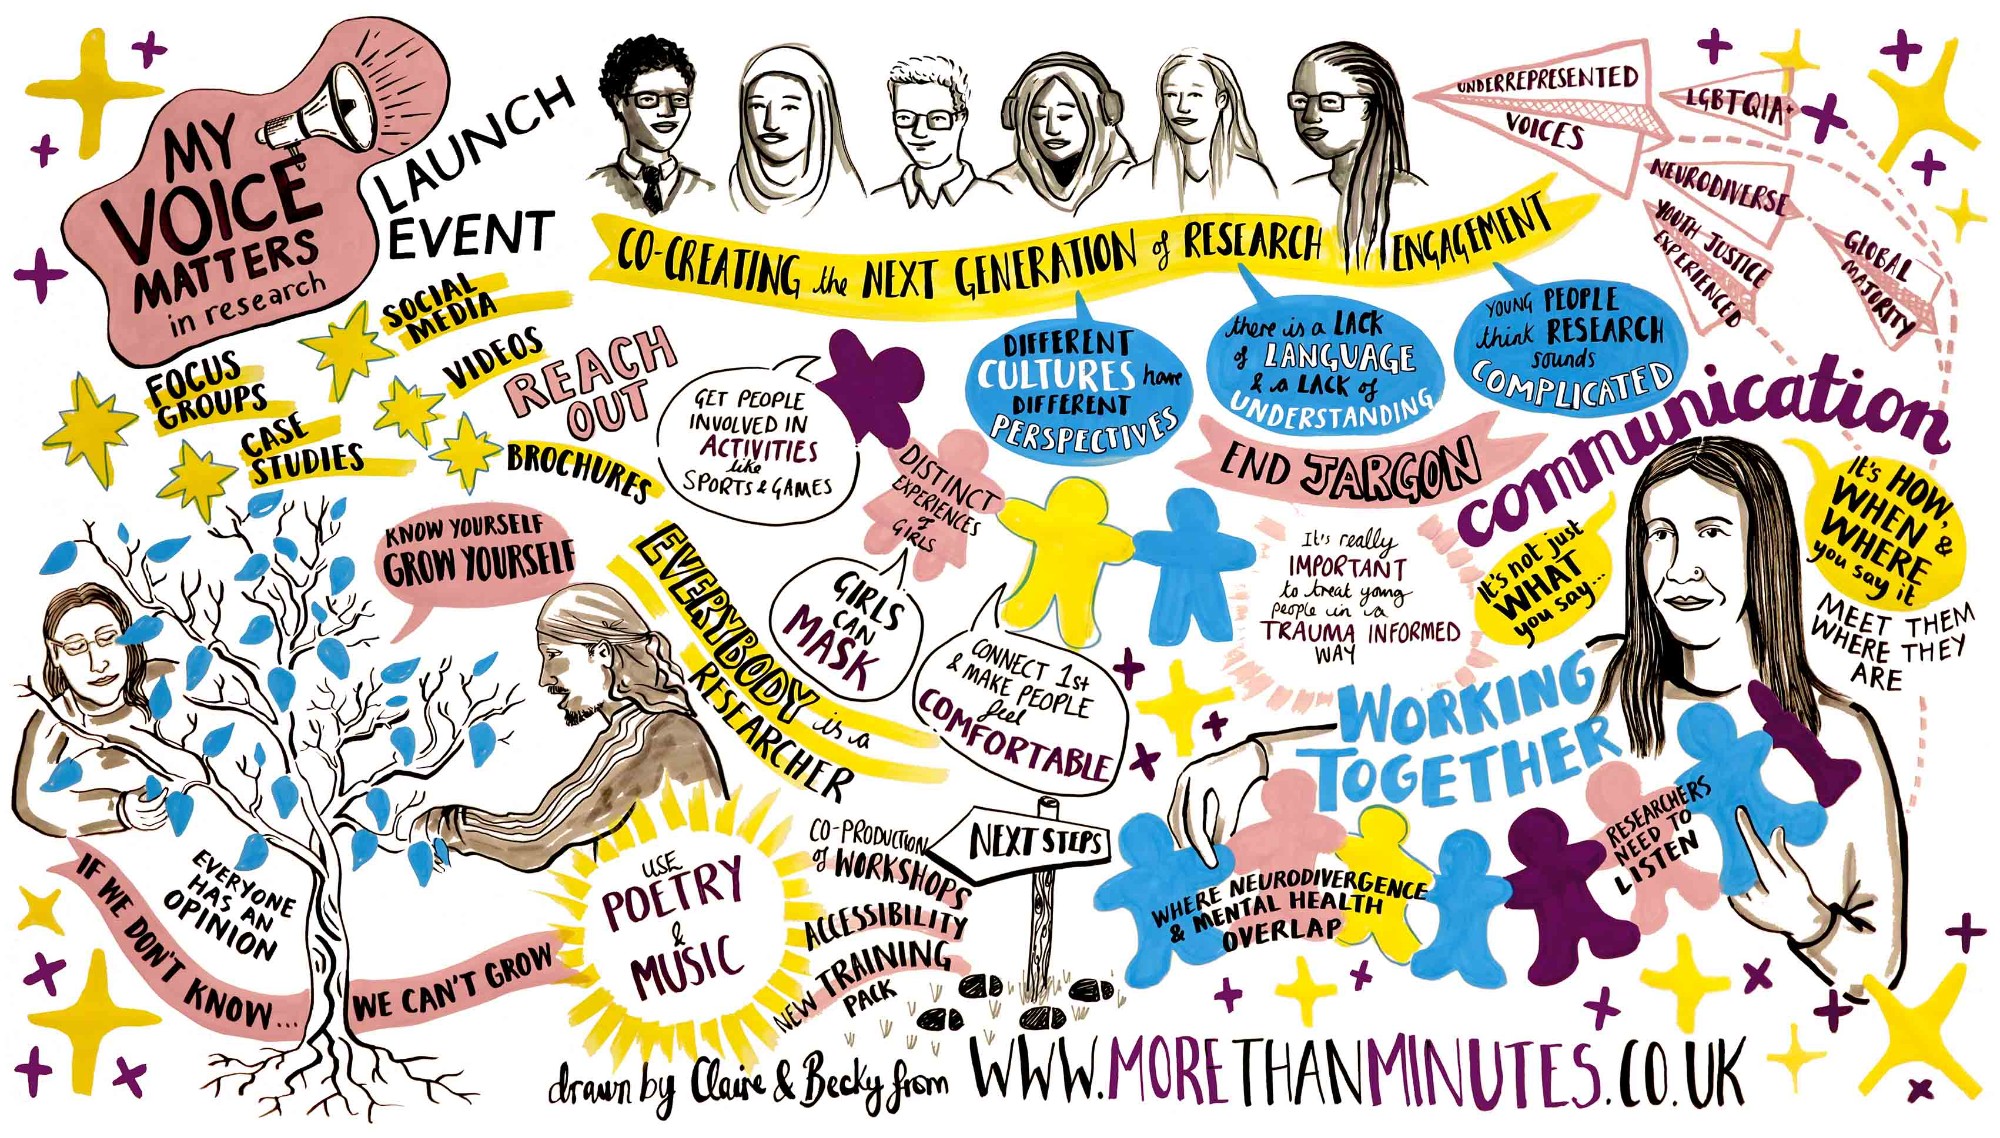 MY
VOICE
MATTERS
in research
LAUNCH
EVENT
CO-CREATING the NEXT GENERATION of RESEARCH ENGAGEMENT
UNDERREPRESENTED
VOICES
LGBTQIA+
NEURODIVERSE
YOUTH JUSTICE
EXPERIENCED
GLOBAL
MAJORITY
SOCIAL
MEDIA
VIDEOS
FOCUS
GROUPS
CASE
STUDIES
BROCHURES
REACH
OUT
GET PEOPLE
INVOLVED IN
ACTIVITIES
like
SPORTS & GAMES
DIFFERENT
CULTURES have
DIFFERENT
PERSPECTIVES
there is a LACK
of LANGUAGE
& a LACK of
UNDERSTANDING
YOUNG PEOPLE
think RESEARCH
sounds
COMPLICATED
END JARGON
communication
KNOW YOURSELF
GROW YOURSELF
EVERYBODY is a
RESEARCHER
DISTINCT
EXPERIENCES
of
GIRLS
GIRLS
CAN
MASK
CONNECT 1st
& MAKE PEOPLE
feel
COMFORTABLE
It's really
IMPORTANT
to treat young
people in a
TRAUMA INFORMED
WAY
It's not just
WHAT
you say...
It's HOW,
WHEN &
WHERE
you say it
MEET THEM
WHERE THEY
ARE
WORKING
TOGETHER
IF WE DON'T KNOW...
WE CAN'T GROW
EVERYONE
HAS AN
OPINION
USE
POETRY
&
MUSIC
NEXT STEPS
CO-PRODUCTION
of WORKSHOPS
ACCESSIBILITY
NEW TRAINING
PACK
WHERE NEURODIVERGENCE
& MENTAL HEALTH
OVERLAP
RESEARCHERS
NEED TO
LISTEN
drawn by Claire & Becky from WWW.MORETHANMINUTES.CO.UK